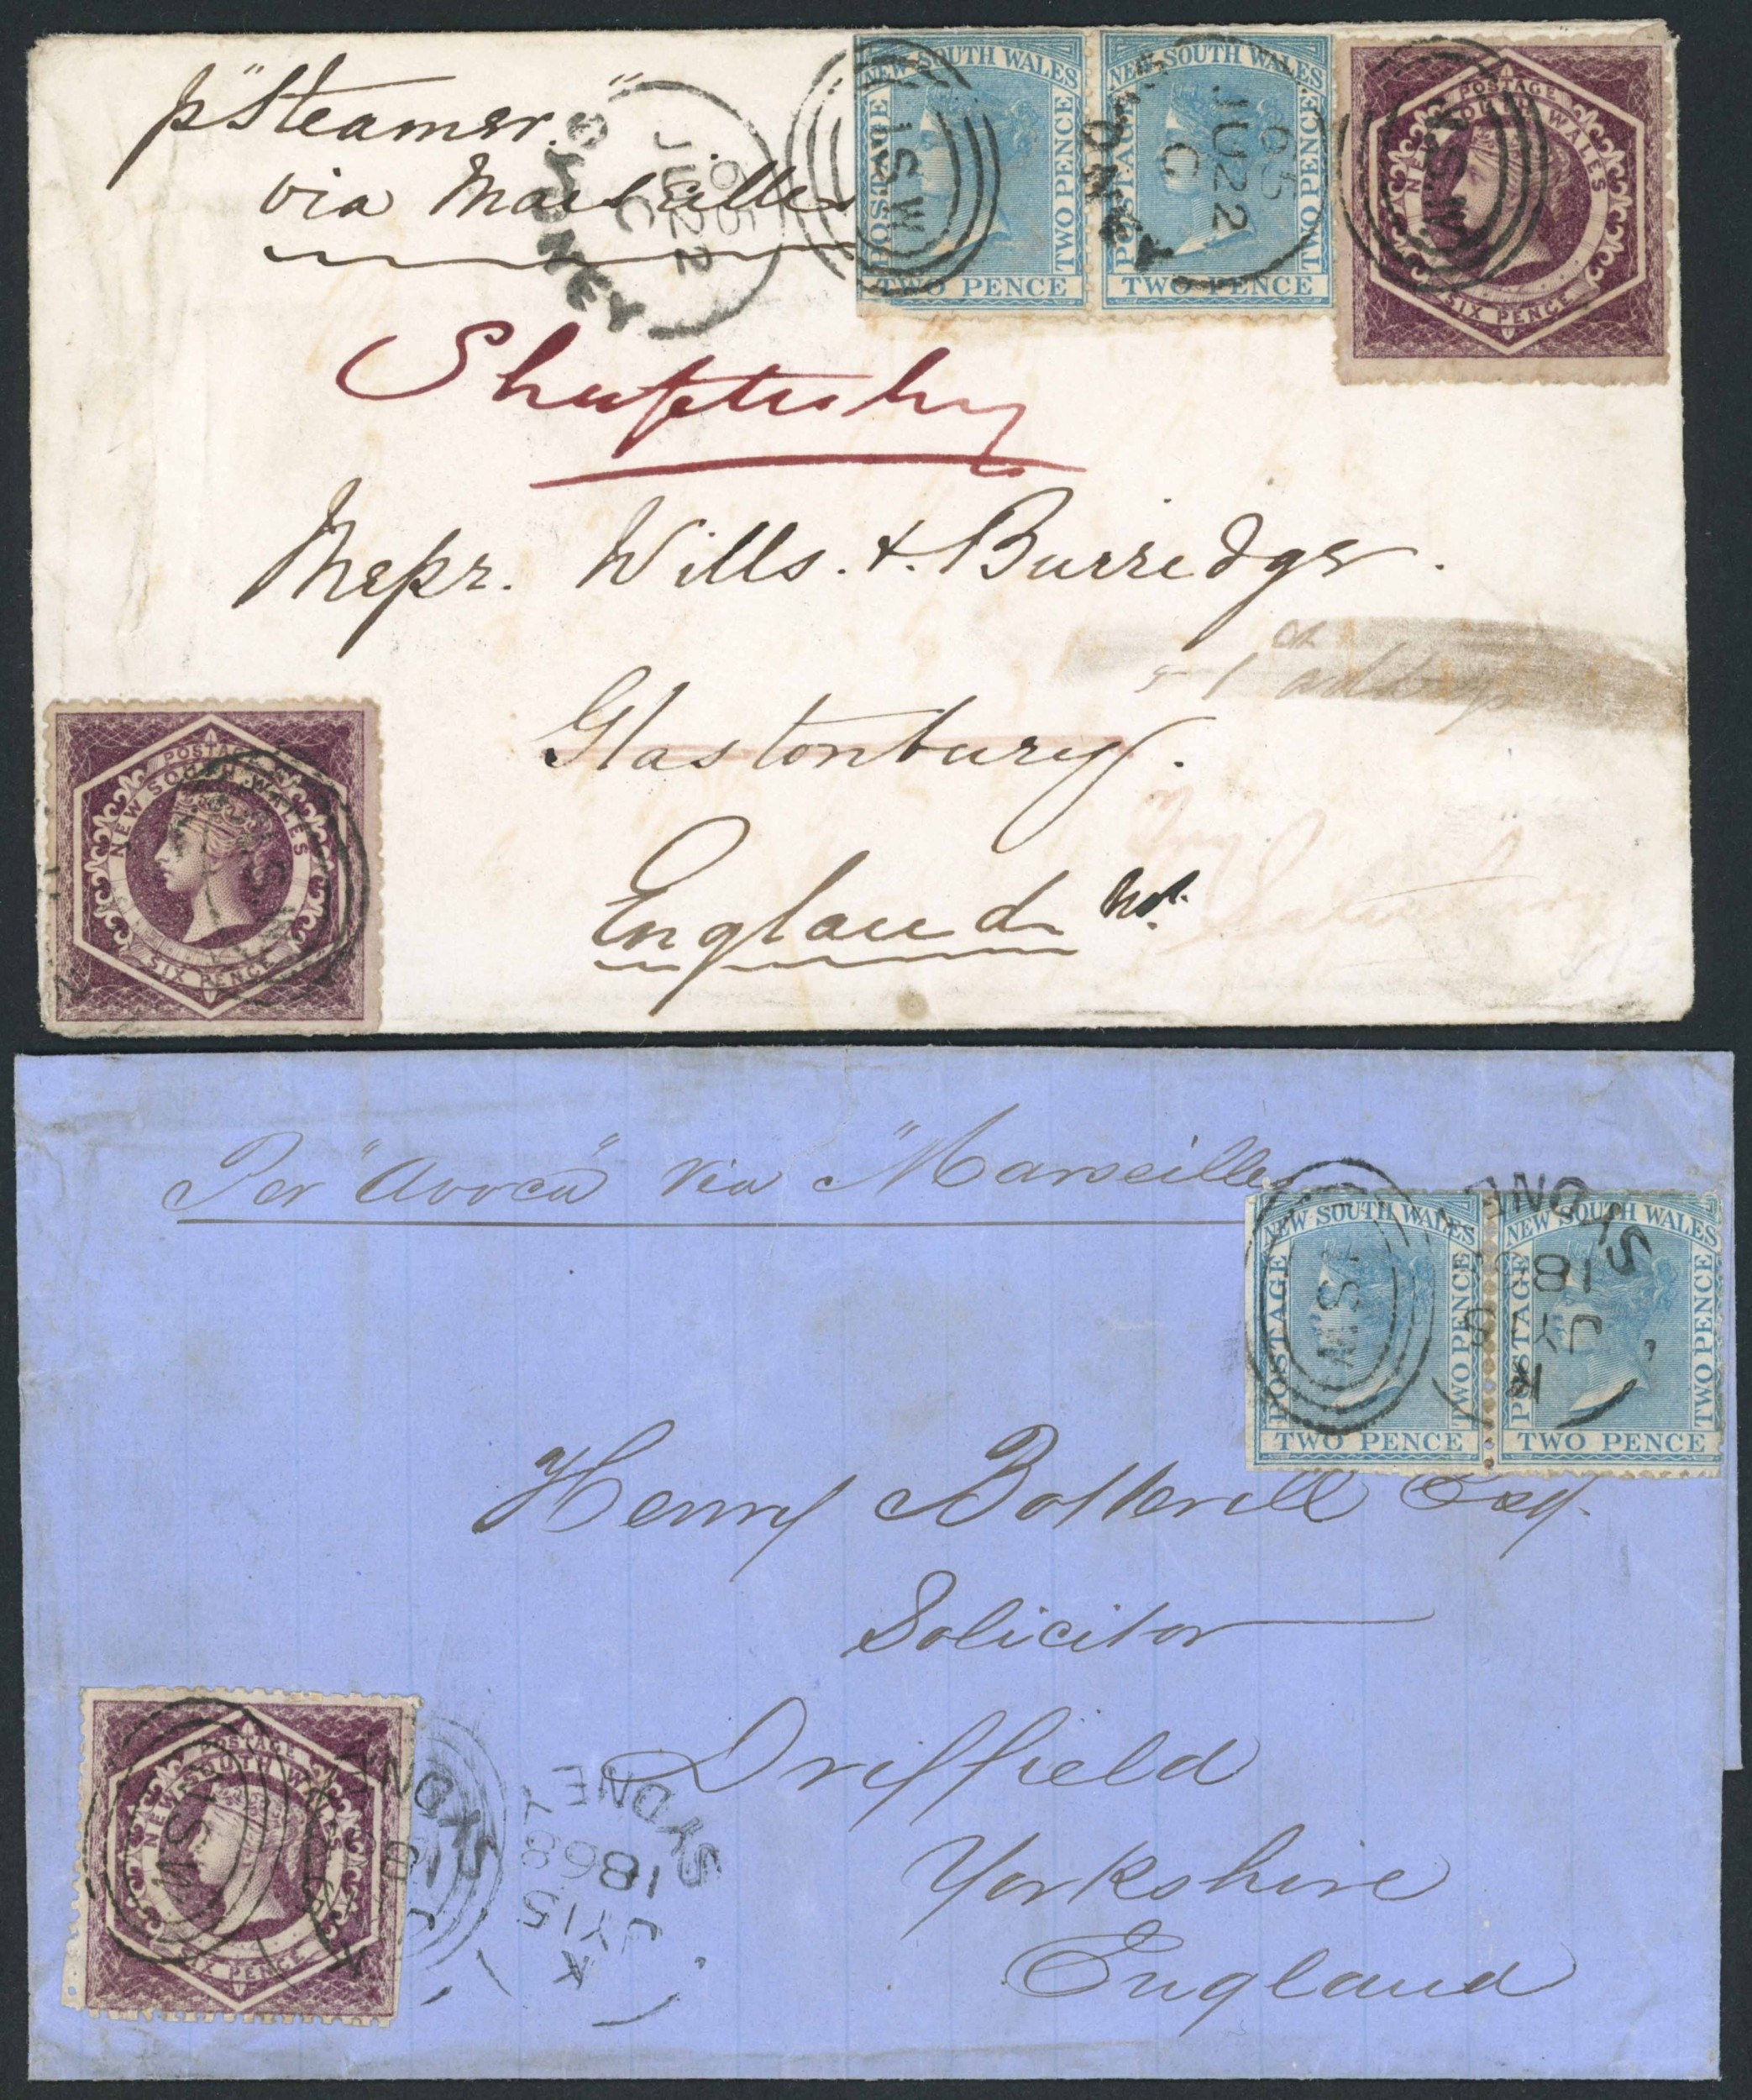 p "Steamer."
via Marseilles
SYDNEY
C
JU 22
65
NSW
NEW SOUTH WALES
POSTAGE
TWO PENCE
TWO PENCE
NEW SOUTH WALES
POSTAGE
TWO PENCE
TWO PENCE
SYDNEY
C
JU 22
65
POSTAGE
NEW SOUTH WALES
SIX PENCE
NSW
Shaftesbury
Messr. Wills. & Burridge.
Glastonbury.
England
Try
POSTAGE
NEW SOUTH WALES
SIX PENCE
Per "Avoca" via "Marseilles
NEW SOUTH WALES
POSTAGE
TWO PENCE
TWO PENCE
NSW
NEW SOUTH WALES
POSTAGE
TWO PENCE
TWO PENCE
SYDNEY
18
JY
K
Henry Botterill Esq.
Solicitor
Driffield
Yorkshire
England
POSTAGE
NEW SOUTH WALES
SIX PENCE
NSW
SYDNEY
18
SYDNEY
1868
JY 15
K